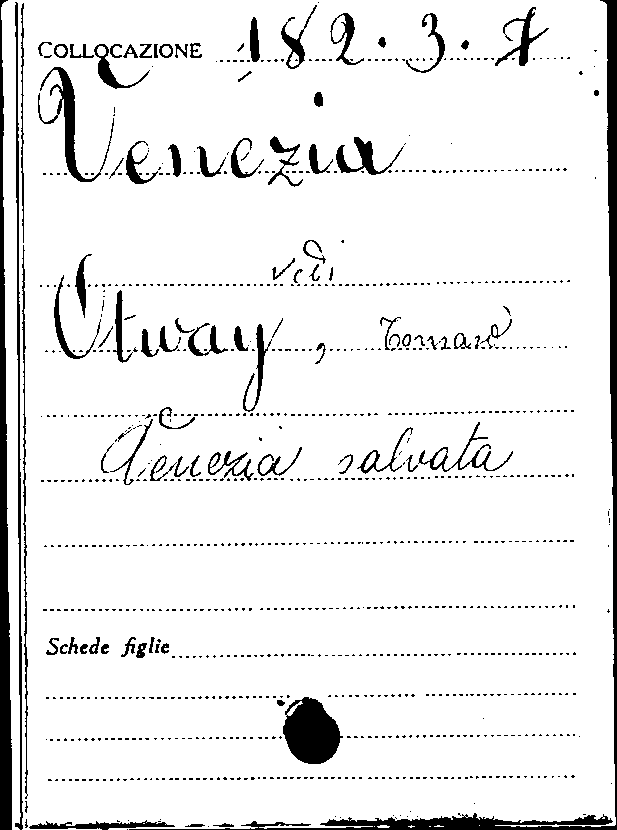 COLLOCAZIONE 182.3.7
Venezia
vedi
Otway, Tomaso
Venezia salvata
Schede figlie